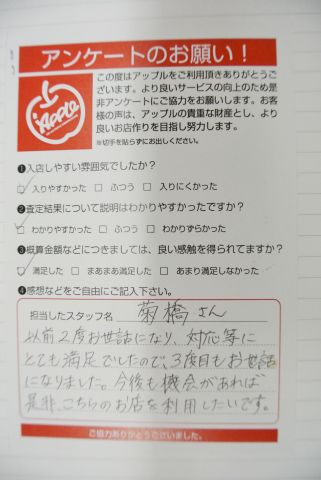 アンケートのお願い！
Apple
この度はアップルをご利用頂きありがとうご
ざいます。より良いサービスの向上のため是
非アンケートにご協力をお願いします。お客
様の声は、アップルの貴重な財産とし、より
良いお店作りを目指し努力します。
※切手を貼らずにお出しください。
❶入店しやすい雰囲気でしたか？
☑ 入りやすかった □ ふつう □ 入りにくかった
❷査定結果について説明はわかりやすかったですか？
☑ わかりやすかった □ ふつう □ わかりずらかった
❸概算金額などにつきましては、良い感触を得られてますか？
☑ 満足した □ まあまあ満足した □ あまり満足しなかった
❹感想などをご自由にご記入下さい。
担当したスタッフ名 菊橋さん
以前2度お世話になり、対応等に
とても満足でしたので、3度目もお世話
になりました。今後も機会があれば
是非、こちらのお店を利用したいです。
ご協力ありがとうございました。